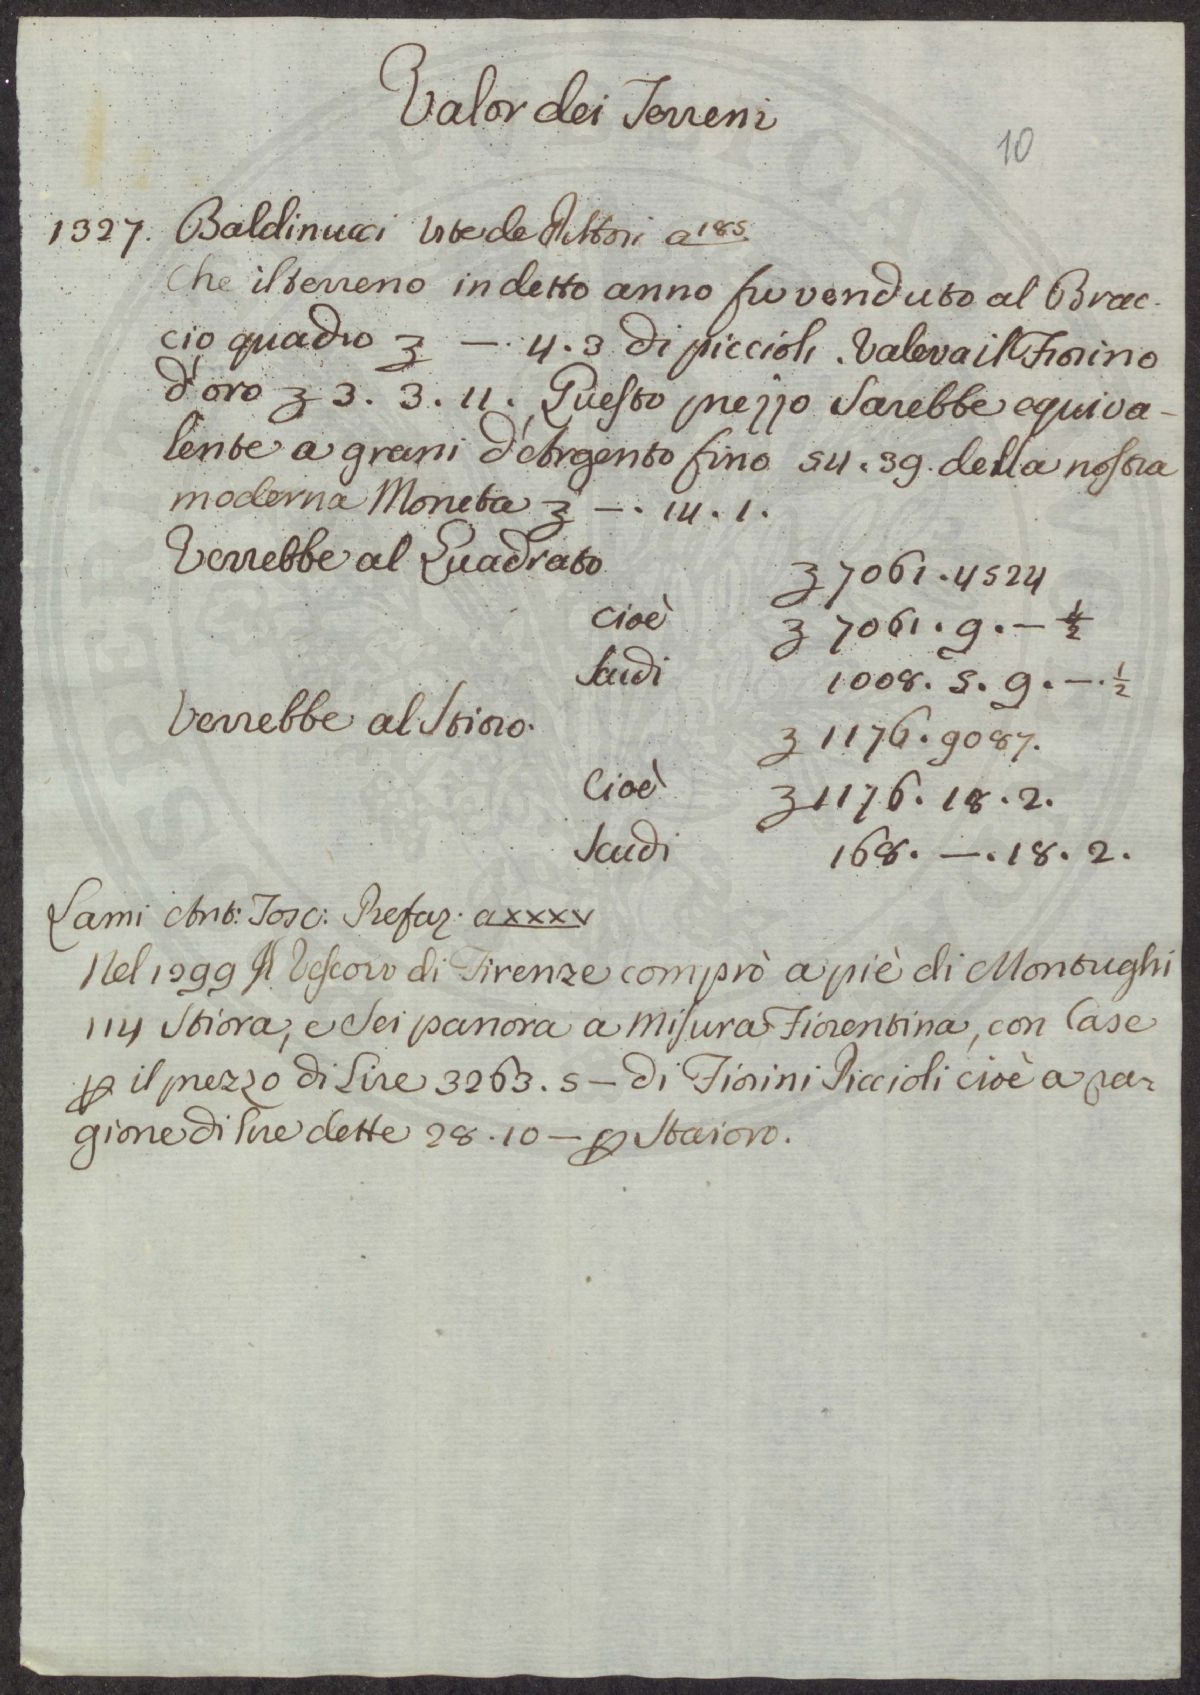 Valor dei Terreni
10
1327. Baldinucci Vite de Pittori a 185
Che il terreno in detto anno fu venduto al Brac-
cio quadro ʒ —. 4. 3 di piccioli. Valeva il Fiorino
d'oro ʒ 3. 3. 11. Questo prezzo Sarebbe equiva-
lente a grani d'Argento fino 54. 39. della nostra
moderna Moneta ʒ —. 14. 1.
Verrebbe al Quadrato ʒ 7061. 4524
cioè ʒ 7061. 9. — ½
Scudi 1008. 5. 9. —. ½
Verrebbe al Stioro. ʒ 1176. 9087.
Cioè ʒ 1176. 18. 2.
Scudi 168. —. 18. 2.
Lami Ant: Tosc: Prefaz. a XXXV
Nel 1299 Il Vescovo di Firenze comprò a piè di Montughi
114 Stiora, e Sei panora a Misura Fiorentina, con Case
ꝑ il prezzo di Lire 3263. 5 — di Fiorini Piccioli cioè a ra-
gione di lire dette 28. 10 — ꝑ Staioro.